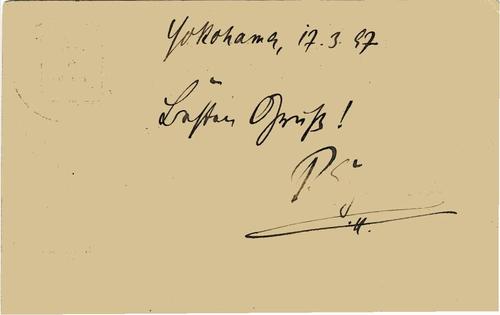 Yokohama, 17.3.97
Besten Gruß!